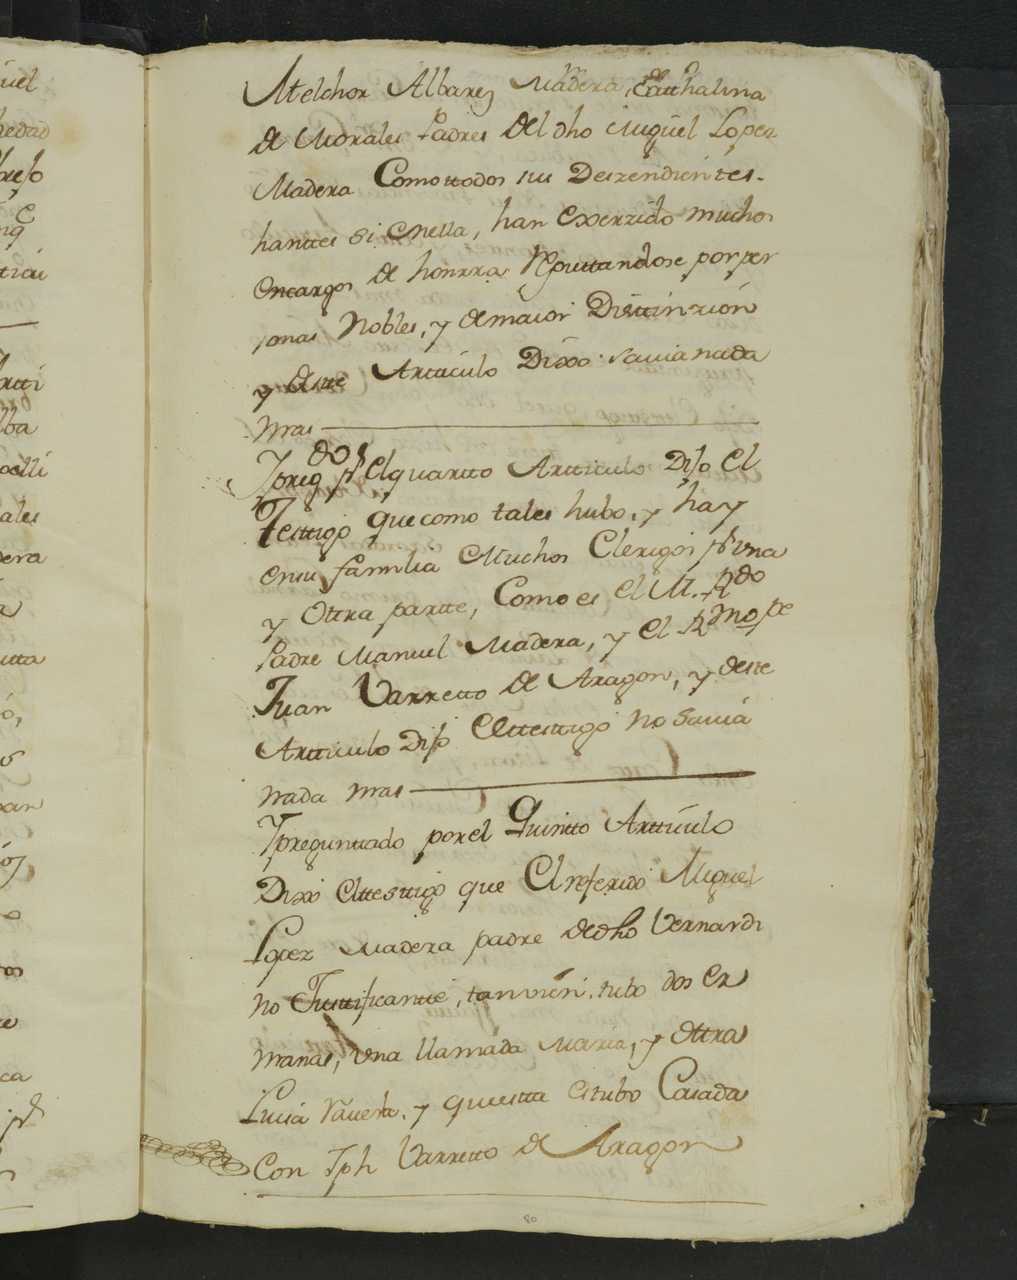 Melchor Albarez Madera, Catthalina
de Morales Padres del dho Miguel Lopez
Madera Comottodos sus Deszendientes.
hanttes si enella, han Exerzido muchos
encargos de honrra Reputtandose por per
sonas Nobles, y demaior Disttinzión
y deste Artticulo Dixo savia nada
mas
Ypregdo pr Elquartto Artticulo Dijo el
Testtigo que como tales hubo, y hay
ensu familia Muchos Clerigos pr Una
y Ottra partte, Como es el M. Rdo
Padre Manuel Madera, y el Rmo Pe
Juan Varretto de Aragon, y deste
Artticulo Dijo Elttesttigo no Savia
nada mas
Ypreguntado por el Quintto Artticulo
Dixo elttesttigo que El referido Miguel
Lopez Madera padre dedho Vernardi
no Justtificantte, tanvien, tubo dos Er
manas, Una llamada Maria, y ottra
Lucia y questta estubo Casada
Con Jph Varretto de Aragon
80